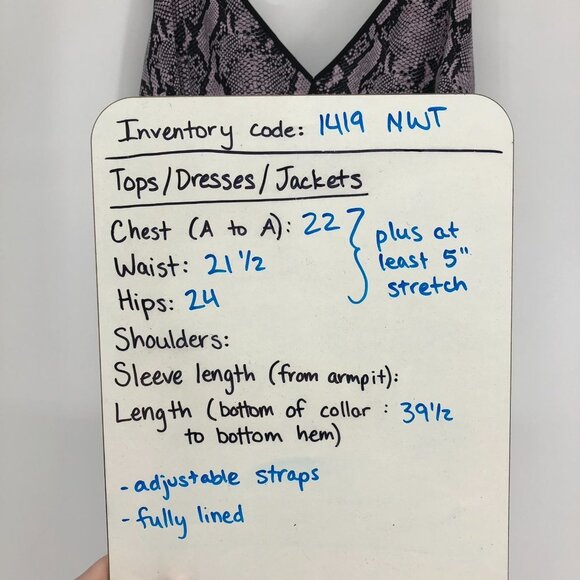 Inventory code: 1419 NWT
Tops/Dresses/Jackets
Chest (A to A): 22
Waist: 21 1/2
Hips: 24
plus at
least 5"
stretch
Shoulders:
Sleeve length (from armpit):
Length (bottom of collar : 39 1/2
to bottom hem)
- adjustable straps
- fully lined